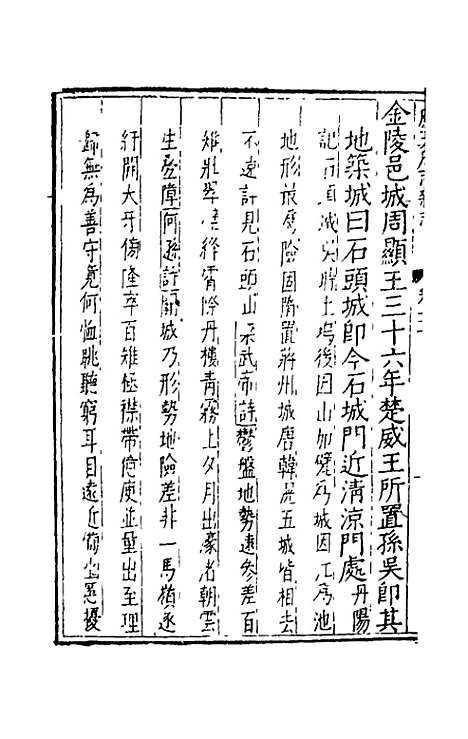 金陵邑城周顯王三十六年楚威王所置孫吳即其
地築城曰石頭城即今石城門近清涼門處丹陽
記石頭城吳時土塢後因山加甓為城因江為池
地形險固隋置蔣州城唐韓滉五城皆相去
不遠詳見石頭山宋武帝詩鬱盤地勢遠參差百
雉壯翠絳霄際丹樓青霧上夕月出濠渚朝雲
生壘障何遜詩關城乃形勢地險差非一馬嶺逐
紆開犬牙傍隆窣百雉極襟帶億庾並量出至理
歸無為善守竟何恤眺聽窮耳目遠近備幽悉擾